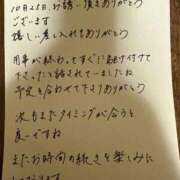 10月25日、お誘い頂きありがとう
ございます
嬉しい差し入れもありがとう
用事が終わってすぐに駆け付けて
下さったと話されていましたね
予定を合わせて下さりありがとう
次もまたタイミングが合うと
良いですね
またお時間の続きを楽しみに
しております